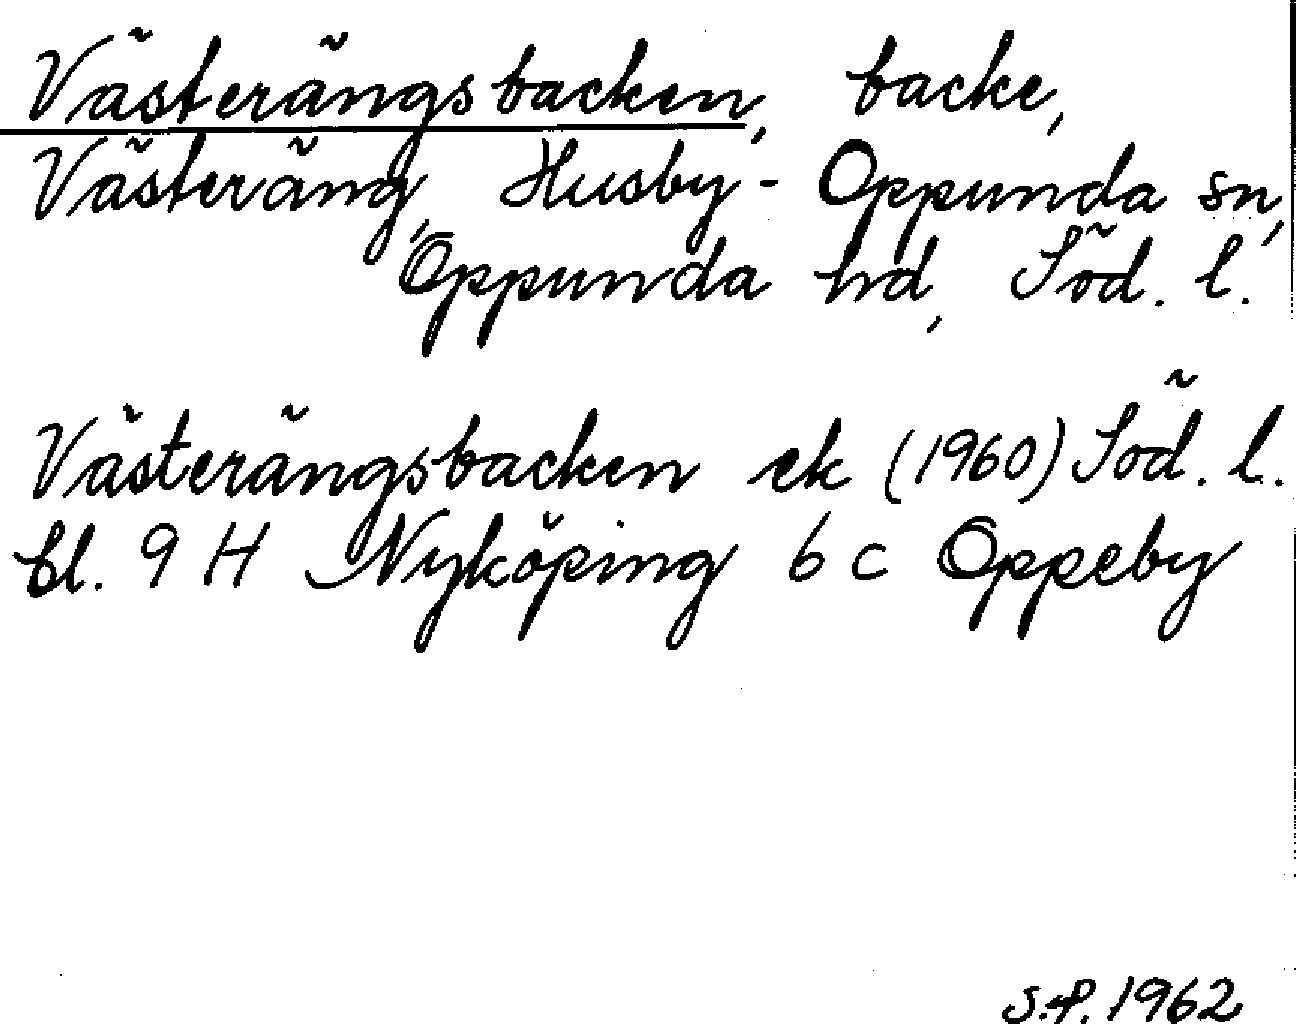 Västerängsbacken, backe,
Västeräng, Husby-Oppunda sn,
Oppunda hd, Söd. l.
Västerängsbacken ek (1960) Söd. l.
bl. 9 H Nyköping 6 c Oppeby
S.P. 1962